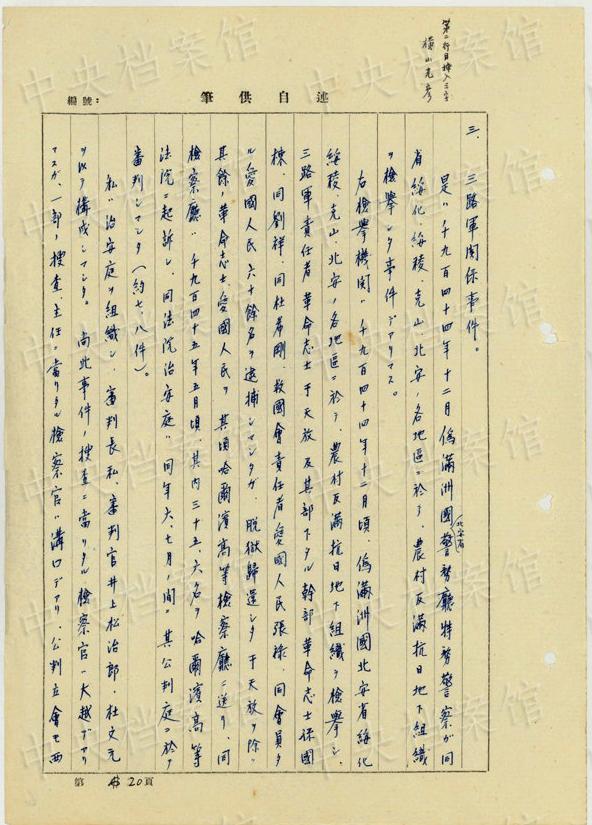 第二行目挿入三字
横山光彦
編號：
筆供自述
三、三路軍関係事件。
是ハ千九百四十四年十二月偽満洲國北安省警務廳特務警察が同
省綏化、綏稜、克山、北安ノ各地區ニ於テ、農村反満抗日地下組織
ヲ検挙シタ事件デアリマス。
右検挙機関ハ千九百四十四年十二月頃、偽満洲國北安省綏化
綏稜、克山、北安ノ各地區ニ於テ、農村反満抗日地下組織ヲ検挙シ、
三路軍責任者革命志士于天放及其部下タル幹部革命志士保國
棟、同劉祥、同杜希剛、救國會責任者愛國人民張禄、同會員タ
ル愛國人民六十餘名ヲ逮捕シマシタガ、脱獄帰還シタ于天放ヲ除ク
其餘ノ革命志士、愛國人民ヲ其頃哈爾濱高等検察廳ニ送リ、同
検察廳ハ千九百四十五年五月頃、其内三十五、六名ヲ哈爾濱高等
法院ニ起訴シ、同法院治安庭ハ同年六、七月ノ間ニ其公判庭ニ於テ
審判シマシタ（約七、八件）。
私ハ治安庭ヲ組織シ、審判長私、審判官井上松治郎・杜文元
ヲ以テ構成シマシタ。尚此事件ノ捜査ニ當リタル検察官ハ大越デアリ
マスガ、一部ノ捜査主任ニ當リタル検察官ハ溝口デアリ、公判立會モ西
第20頁
中央档案馆